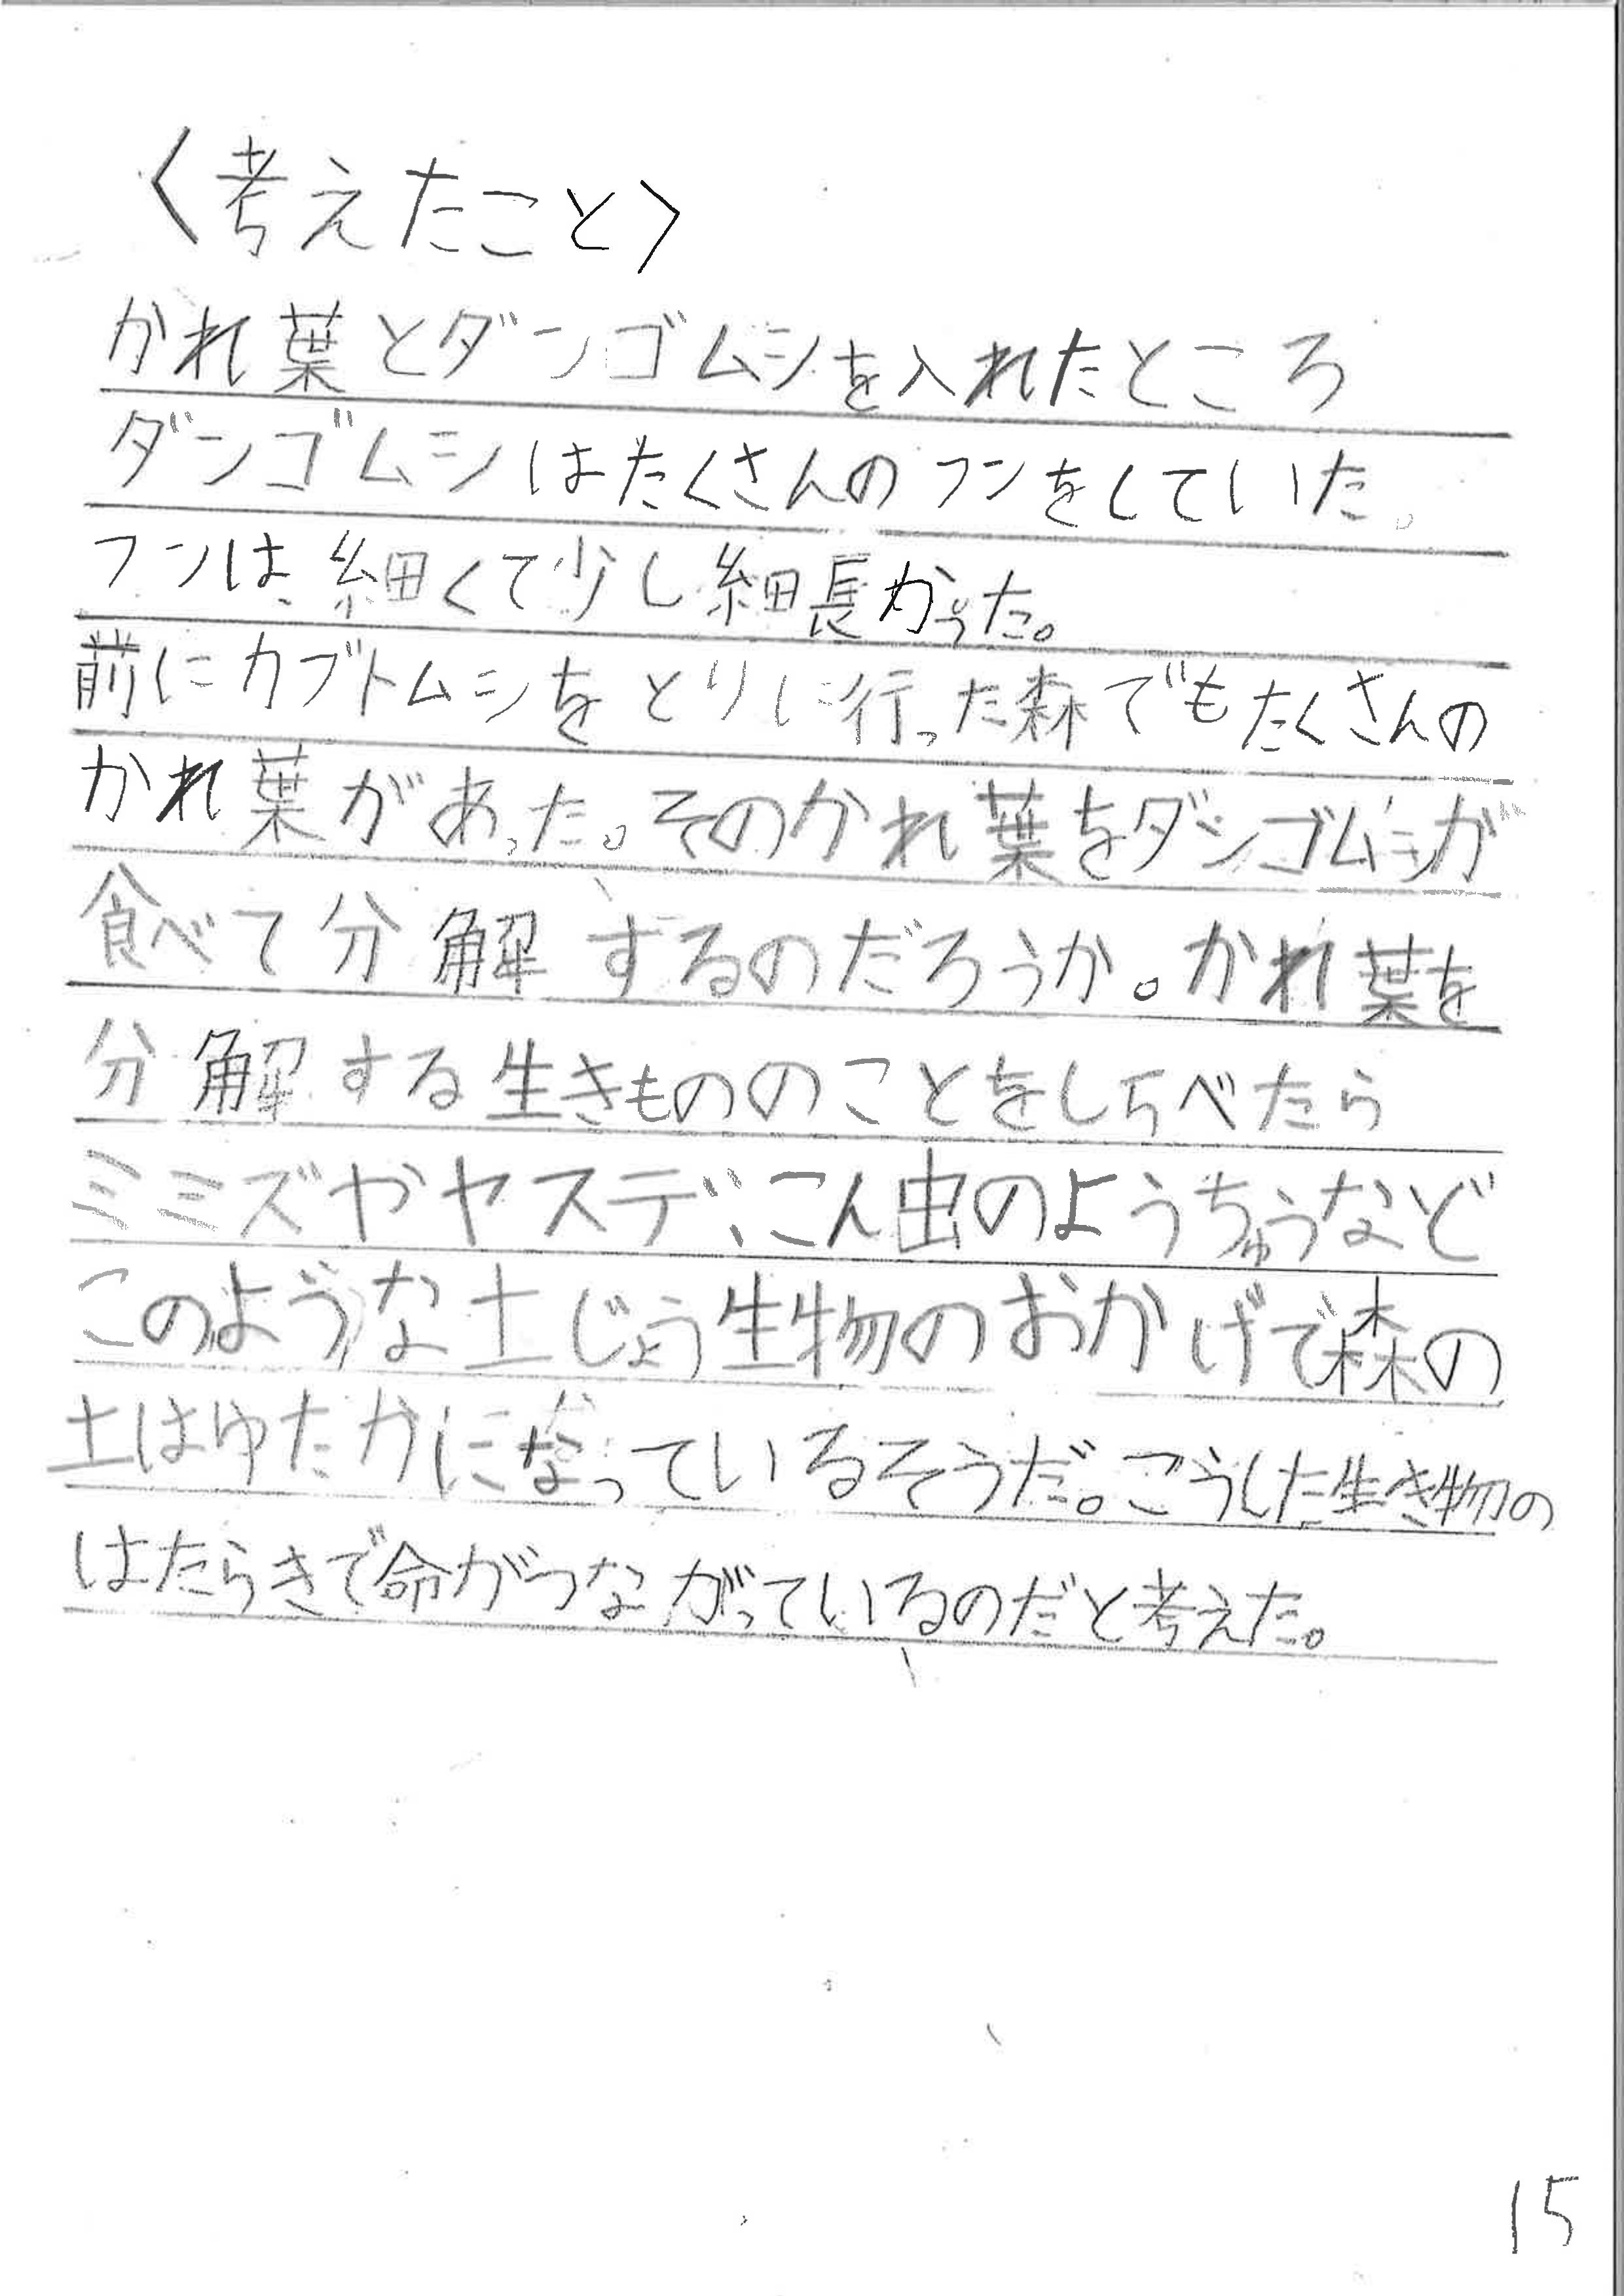 〈考えたこと〉
かれ葉とダンゴムシを入れたところ
ダンゴムシはたくさんのフンをしていた。
フンは、細くて少し細長かった。
前にカブトムシをとりに行った森でもたくさんの
かれ葉があった。そのかれ葉をダンゴムシが
食べて分解するのだろうか。かれ葉を
分解する生きもののことをしらべたら
ミミズやヤスデ、こん虫のようちゅうなど
このような土じょう生物のおかげで森の
土はゆたかになっているそうだ。こうした生き物の
はたらきで命がつながっているのだと考えた。
15